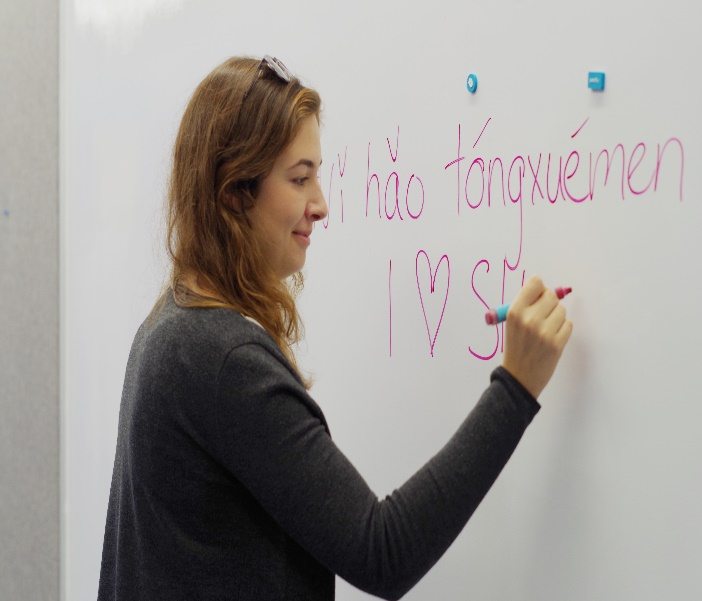 hǎo tóngxuémen
I ♡